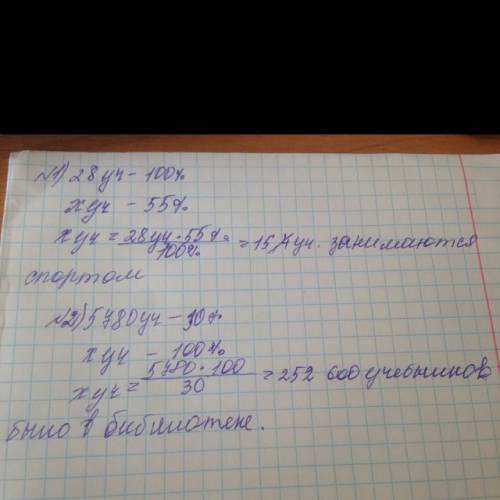 №1) 28 уч - 100%
х уч - 55%
х уч = 28 уч · 55% / 100% = 15,4 уч. занимаются
спортом
№2) 5780 уч - 30%
х уч - 100%
х уч = 5780 · 100 / 30 = 252 600 учебников
было в библиотеке.